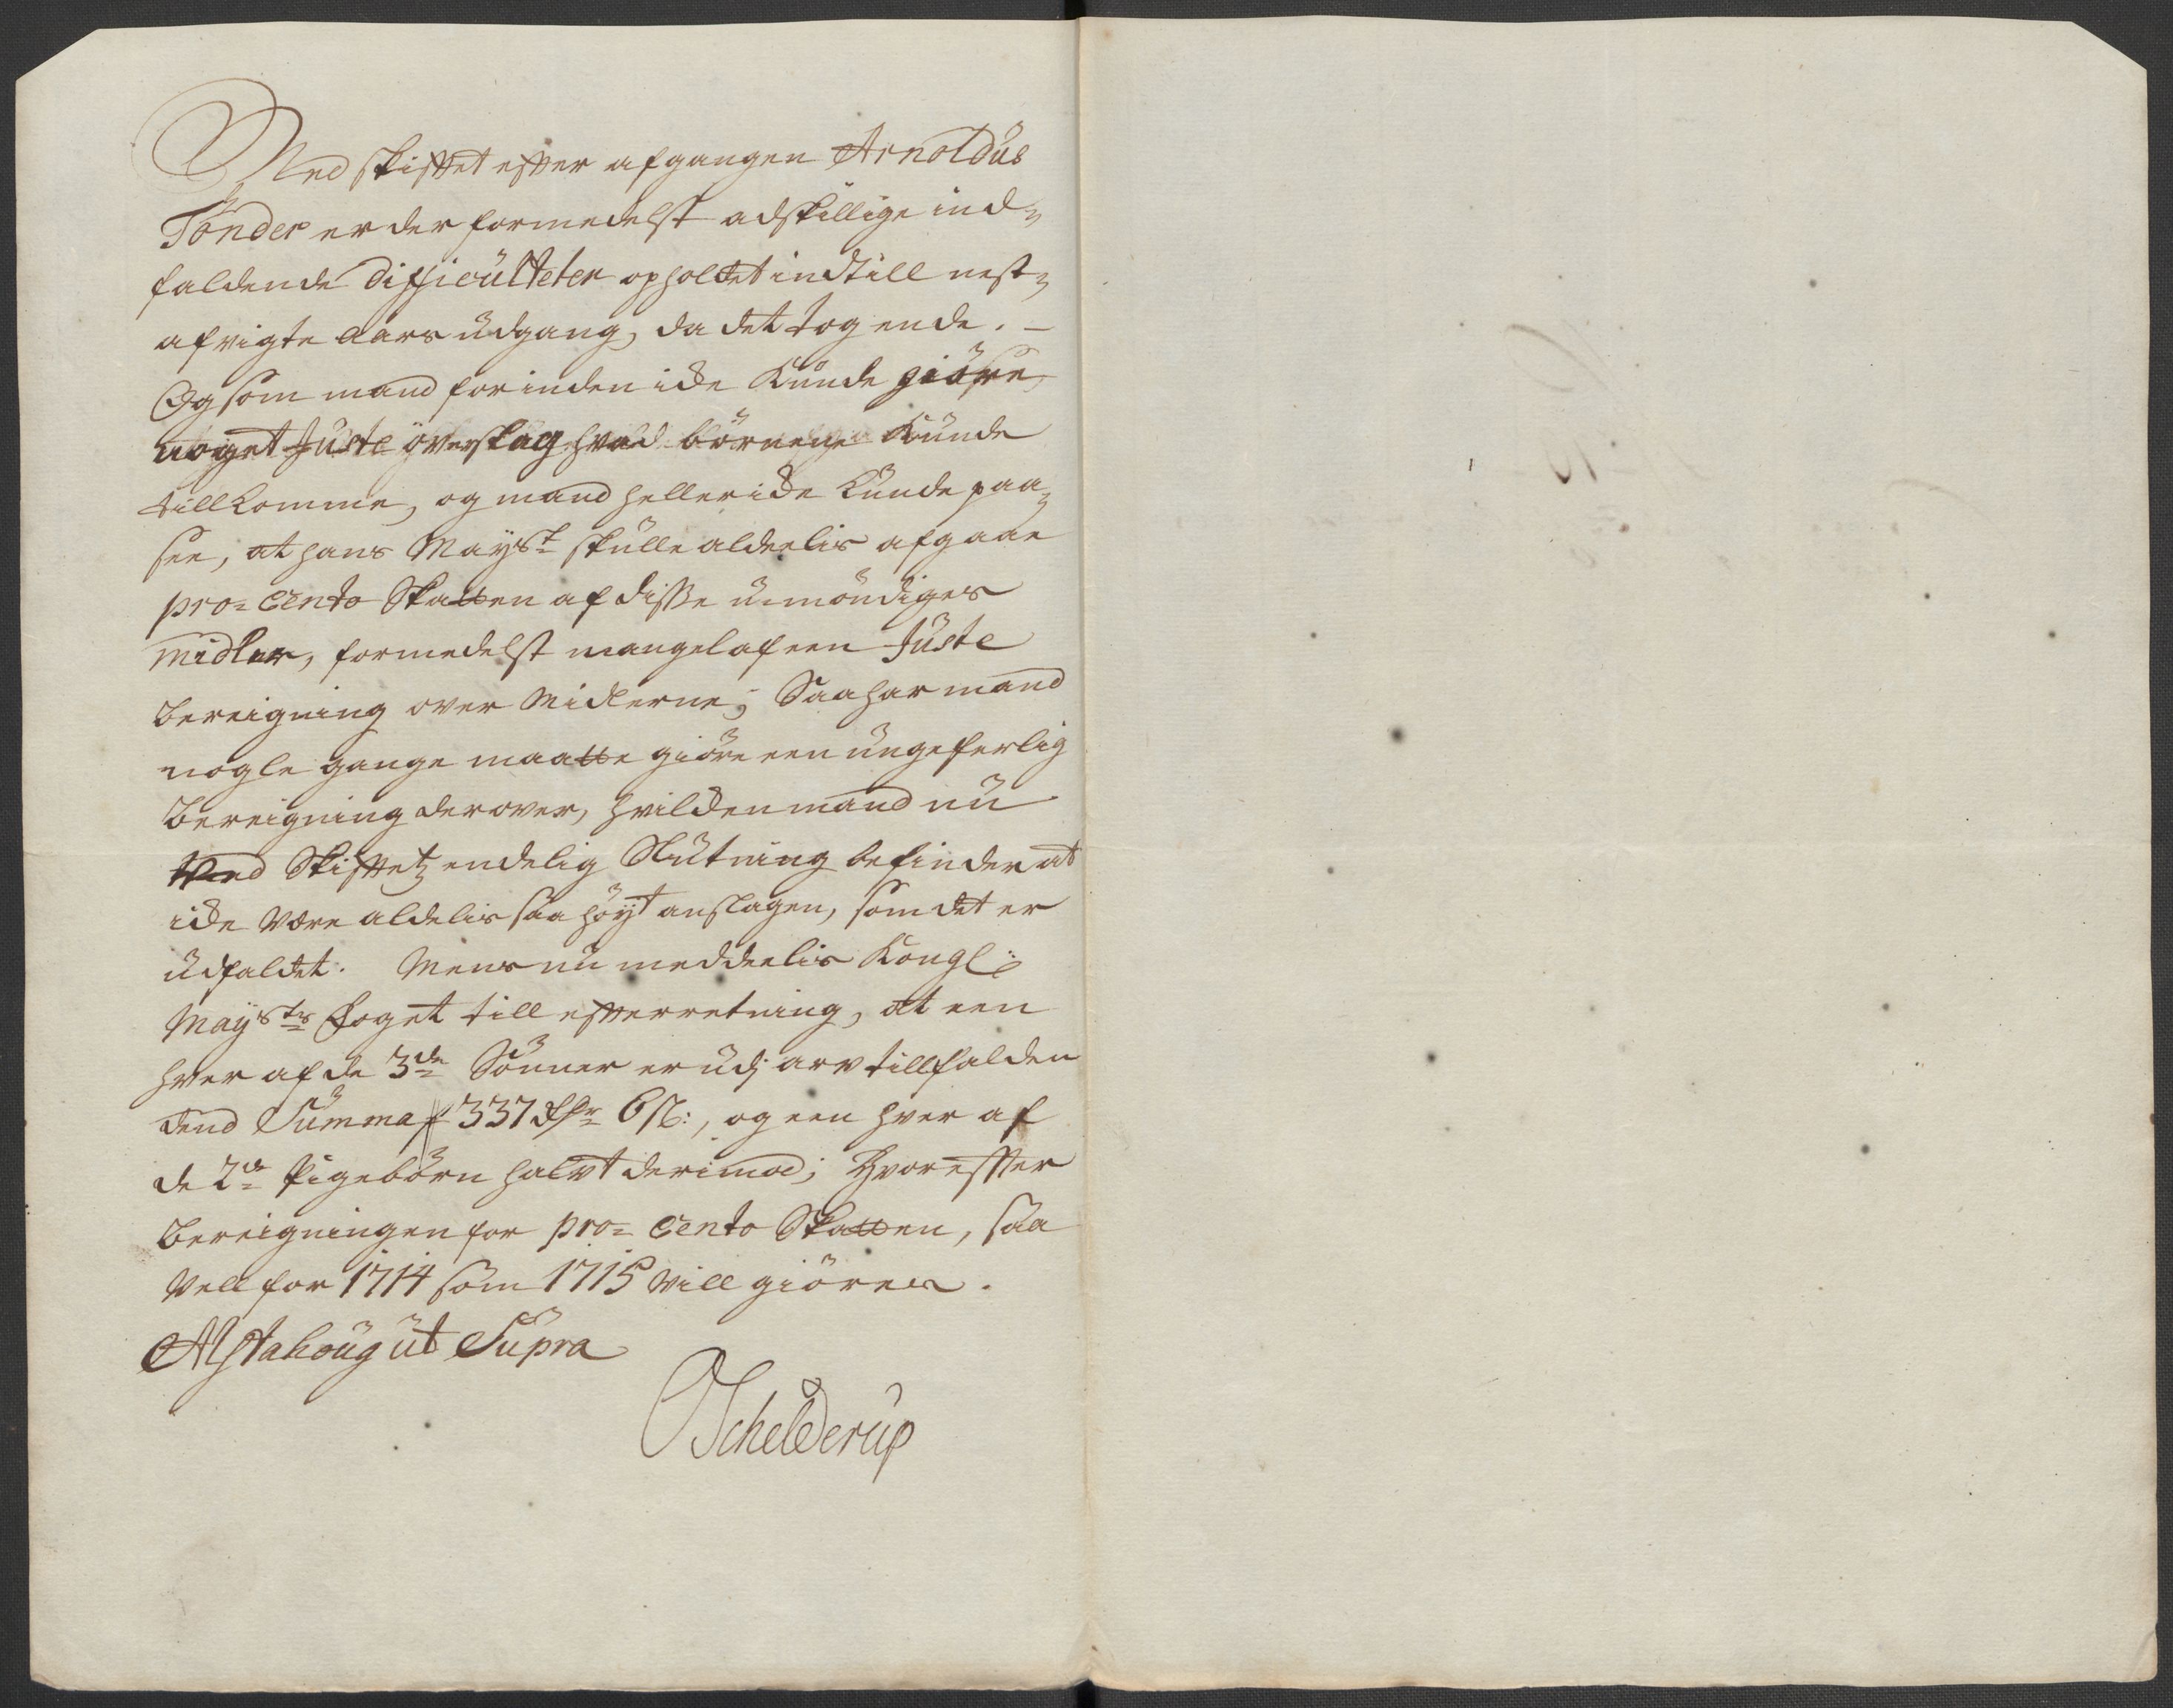 Med skifftet effter afgangen Arnoldus
Tönder er der formedelst adskillige ind-
faldende difficulteter opholdet indtill nest-
afvigte aars udgang, da det tog ende. -
Og som mand forinden icke kunde giöre
noget juste öfverslag hvad börnene kunde
tillkomme, og mand heller icke kunde paa-
see, at hans Mayst skulle aldeelis afgaae
pro-Cento Skatten af disse umöndiges
midler, formedelst mangel af een juste
bereigning over Midlerne; Saa har mand
nogle gange maatte giöre een ungeferlig
bereigning derover, hvilcken mand nu
ved Skifftetz endelig Slutning befinder at
icke være aldelis saa höyt anslagen, som det er
udfaldet. Mens nu meddeelis Kongl:
Maysts Foget till effterretning, at een
hver af de 3de Sönner er udj arv tillfalden
dend Summa 337 Rdr 6 s:, og een hver af
de 2de Pigebörn halvt derimod; Hvoreffter
bereigningen for pro-Cento Skatten, saa
vell for 1714 som 1715 vill giöres.
Alstahoug ut Supra
OSchelderup